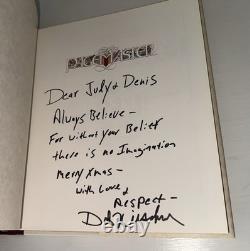 PAGEMASTER
Dear Judy & Denis
Always Believe -
For without your Belief
there is no Imagination
Merry Xmas -
with Love &
Respect -